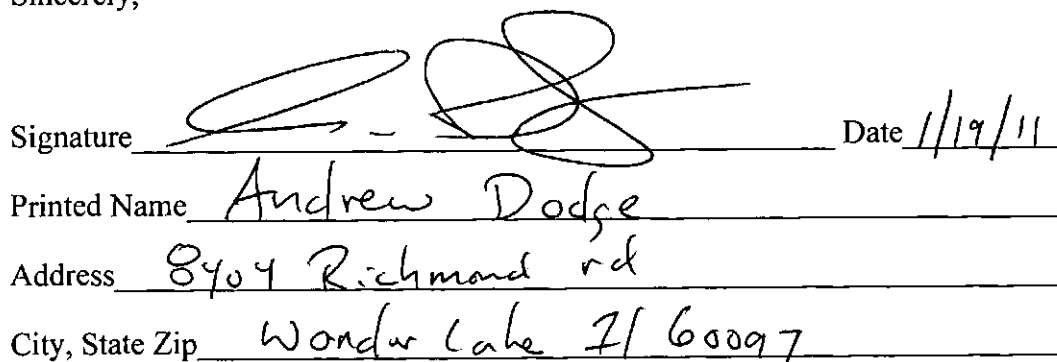 Sincerely,
Signature Date 1/19/11
Printed Name Andrew Dodge
Address 8404 Richmond rd
City, State Zip Wonder Lake Il 60097